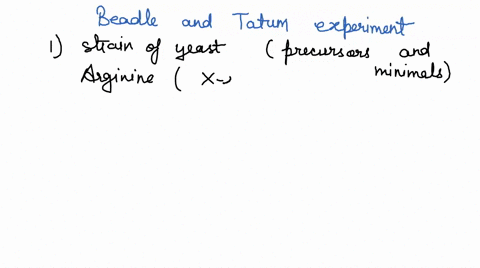 Beadle and Tatum experiment
1) strain of yeast (precursors and
minimals)
Arginine ( X